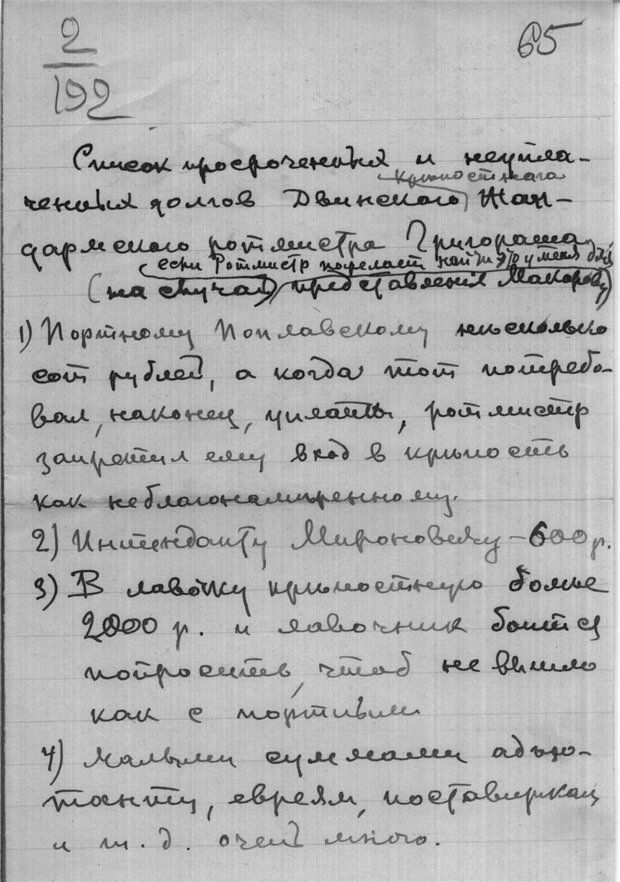 2
192
65
Список просроченных и неупла-
крѣпостнаго
ченных долгов Двинского Жан-
дармского ротмистра Григораша
если Ротмистр пожелает найти
(на случай представления Макарову)
1) Портному Поплавскому нѣсколько
сот рублей, а когда тот потребо-
вал, наконец, уплаты, ротмистр
запретил ему вход в крѣпость
как неблагонамѣренному.
2) Интенданту Мироновскому – 600 р.
3) В лавочку крѣпостную болѣе
2000 р. и лавочник боится
попросить, чтоб не вышло
как с портным
4) малыми суммами адъю-
танту, евреям, поставщикам
и т. д. очень много.